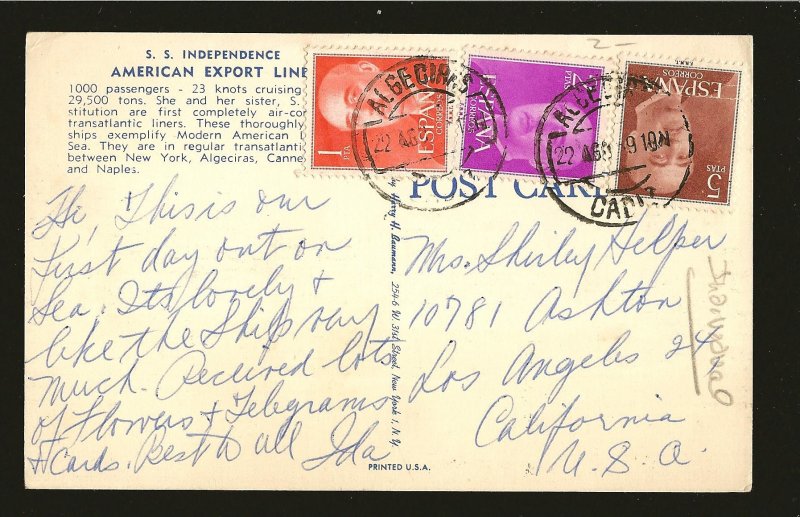 S. S. INDEPENDENCE
AMERICAN EXPORT LINE
1000 passengers - 23 knots cruising
29,500 tons. She and her sister, S.
stitution are first completely air-con
transatlantic liners. These thoroughly
ships exemplify Modern American
Sea. They are in regular transatlanti
between New York, Algeciras, Canne
and Naples.
Hi, This is our
first day out on
Sea. Its lovely &
like the Ship very
much. Received lots
of Flowers & Telegrams
& Cards. Best to all Ida
by Harry H. Baumann, 254-6 W. 31st Street, New York 1, N. Y.
PRINTED U.S.A.
POST CAR
1 PTA
ESPAÑA
CORREOS
2 PTAS
ESPAÑA
CORREOS
5 PTAS
ESPAÑA
CORREOS
ALGECIRAS
22 AGO
ALGECIRAS
22 AGO 9 10N
CADIZ
2-
Mrs. Shirley Helper
10781 Ashton
Los Angeles 24,
California
U.S.A.